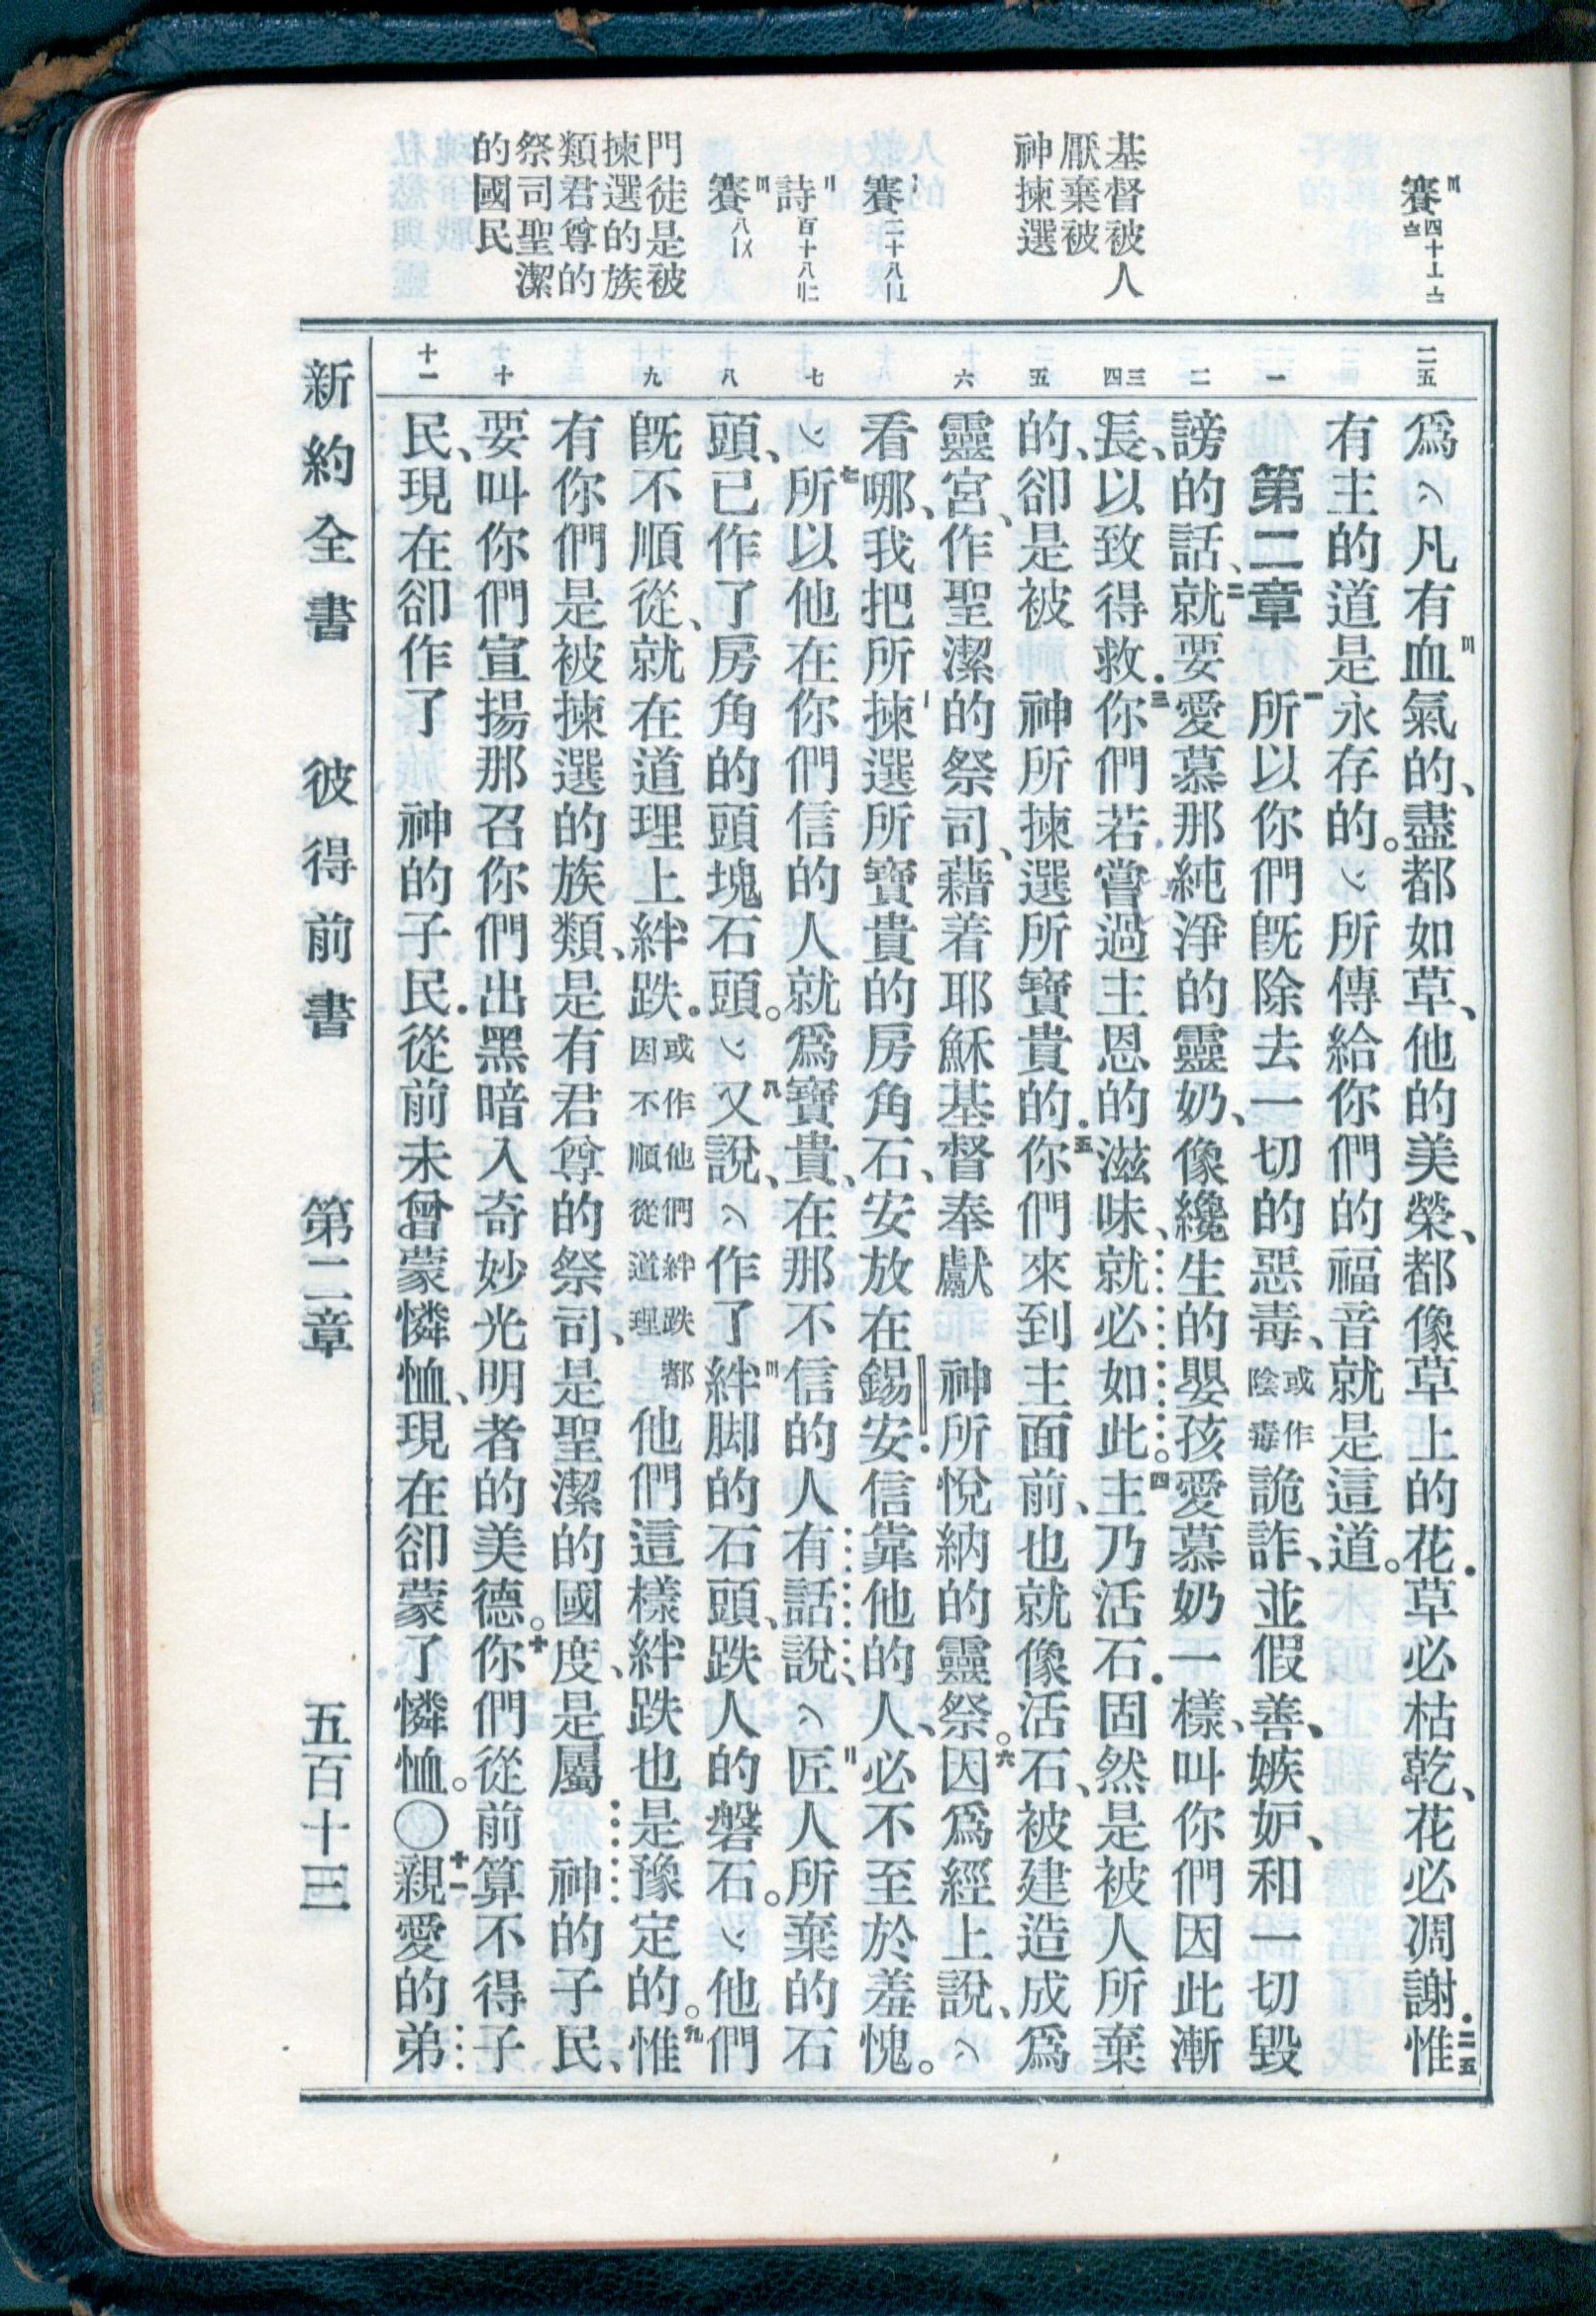 賽四十
基督被人
厭棄被
神揀選
賽二十八
詩百十八
賽八
門徒是被
揀選的族
類君尊的
祭司聖潔
的國民
二五
一
二
三四
五
六
七
八
九
十
十一
爲〽凡有血氣的、盡都如草、他的美榮、都像草上的花．草必枯乾、花必凋謝．二五惟
有主的道是永存的。〽所傳給你們的福音就是這道。
第二章　一所以你們旣除去一切的惡毒、或作陰毒詭詐、並假善、嫉妒、和一切毀
謗的話、二就要愛慕那純淨的靈奶、像纔生的嬰孩愛慕奶一樣、叫你們因此漸
長、以致得救．三你們若嘗過主恩的滋味、就必如此。四主乃活石．固然是被人所棄
的、卻是被　神所揀選所寶貴的．五你們來到主面前、也就像活石、被建造成爲
靈宮、作聖潔的祭司、藉着耶穌基督奉獻　神所悅納的靈祭。六因爲經上說、〽
看哪、我把所揀選所寶貴的房角石、安放在錫安．信靠他的人、必不至於羞愧。
〽七所以他在你們信的人就爲寶貴、在那不信的人有話說、〽匠人所棄的石
頭、已作了房角的頭塊石頭。〽八又說、〽作了絆脚的石頭、跌人的磐石。〽他們
旣不順從、就在道理上絆跌．或作他們絆跌都因不順從道理他們這樣絆跌也是豫定的。九惟
有你們是被揀選的族類、是有君尊的祭司、是聖潔的國度、是屬　神的子民、
要叫你們宣揚那召你們出黑暗入奇妙光明者的美德。十你們從前算不得子
民、現在卻作了　神的子民．從前未曾蒙憐恤、現在卻蒙了憐恤。〇十一親愛的弟
新約全書　彼得前書　第二章　五百十三